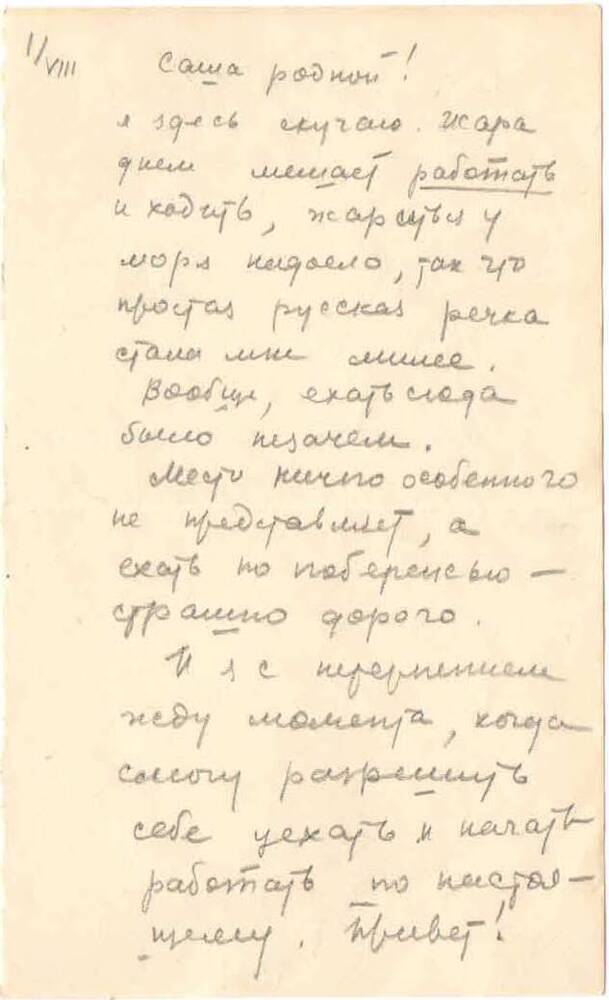 1/VIII
Саша родной!
я здесь скучаю. Жара
днем мешает работать
и ходить, жариться у
моря надоело, так что
простая русская речка
стала мне милее.
Вообще, ехать сюда
было незачем.
Место ничего особенного
не представляет, а
ехать по побережью —
страшно дорого.
И я с нетерпением
жду момента, когда
смогу разрешить
себе уехать и начать
работать по настоя-
щему. Привет!